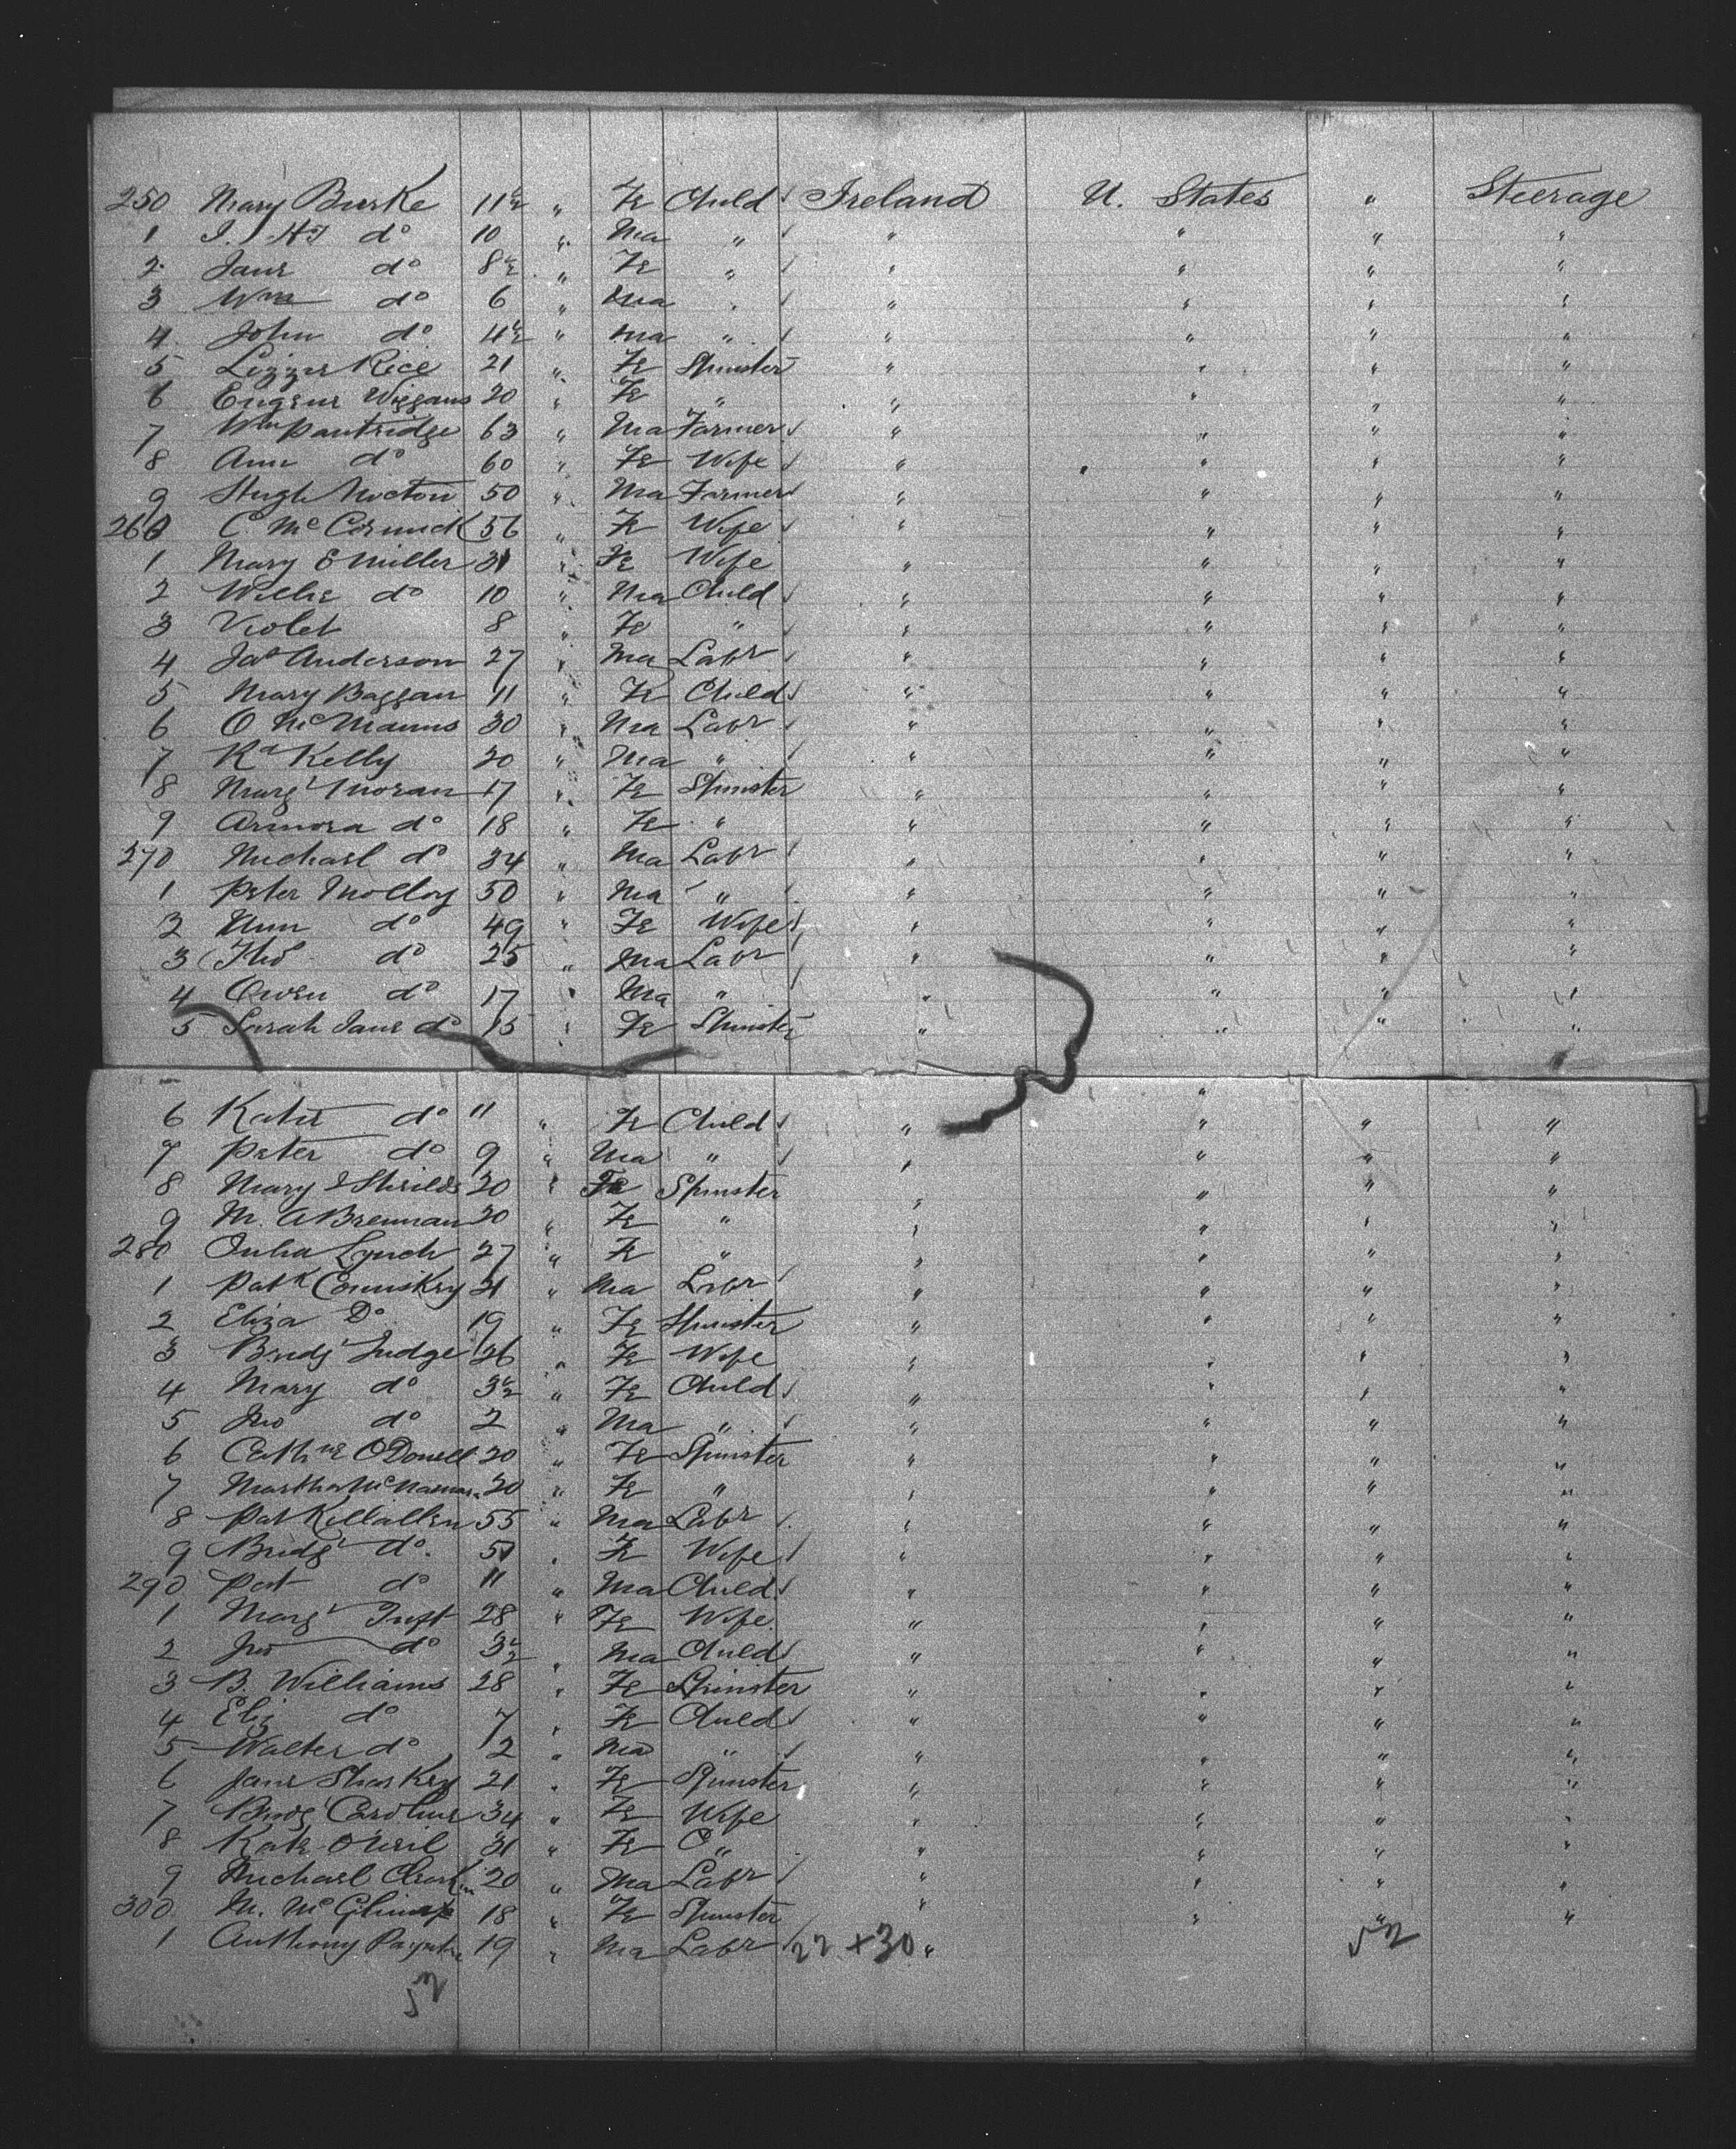 250 Mary Burke 11½ " Fe Child Ireland U. States " Steerage
1 J. do 10 " Ma " " " " "
2 Jane do 8½ " Fe " " " " "
3 Wm do 6 " Ma " " " " "
4 John do 4½ " Ma " " " " "
5 Lizzie Rice 21 " Fe Spinster " " " "
6 Eugene Wiggans 20 " Fe " " " " "
7 Wm Pantridge 63 " Ma Farmer " " " "
8 Ann do 60 " Fe Wife " " " "
9 Hugh Nocton 50 " Ma Farmer " " " "
260 C. McCormick 56 " Fe Wife " " " "
1 Mary E Miller 31 " Fe Wife " " " "
2 Willie do 10 " Ma Child " " " "
3 Violet 8 " Fe " " " " "
4 Jas Anderson 27 " Ma Labr " " " "
5 Mary Baggan 11 " Fe Child " " " "
6 O McManus 30 " Ma Labr " " " "
7 Rd Kelly 20 " Ma " " " " "
8 Margt Moran 17 " Fe Spinster " " " "
9 Armora do 18 " Fe " " " " "
270 Michael do 34 " Ma Labr " " " "
1 Peter Molloy 50 " Ma " " " " "
2 Ann do 49 " Fe Wife " " " "
3 Thos do 25 " Ma Labr " " " "
4 Owen do 17 " Ma " " " " "
5 Sarah Jane do 15 " Fe Spinster " " " "
6 Kate do 11 " Fe Child " " " "
7 Peter do 9 " Ma " " " " "
8 Mary Shields 20 " Fe Spinster " " " "
9 M. A Brennan 20 " Fe " " " " "
280 Julia Lynch 27 " Fe " " " " "
1 Patk Comiskey 21 " Ma Labr " " " "
2 Eliza Do 19 " Fe Spinster " " " "
3 Bridgt Judge 26 " Fe Wife " " " "
4 Mary do 3½ " Fe Child " " " "
5 Jno do 2 " Ma " " " " "
6 Cathne ODonell 20 " Fe Spinster " " " "
7 Martha McNamara 20 " Fe " " " " "
8 Pat Killallen 55 " Ma Labr " " " "
9 Bridgt do. 51 " Fe Wife " " " "
290 Pat do 11 " Ma Child " " " "
1 Margt Tuft 28 " Fe Wife " " " "
2 Jno do 3½ " Ma Child " " " "
3 B. Williams 28 " Fe Spinster " " " "
4 Eliz do 7 " Fe Child " " " "
5 Walter do 2 " Ma " " " " "
6 Jane Sharkey 21 " Fe Spinster " " " "
7 Bridgt Caroline 34 " Fe Wife " " " "
8 Kate O'Neil 31 " Fe " " " " "
9 Michael 20 " Ma Labr " " " "
300 M. 18 " Fe Spinster " " " "
1 Anthony 19 " Ma Labr 22 +30 " 52
52